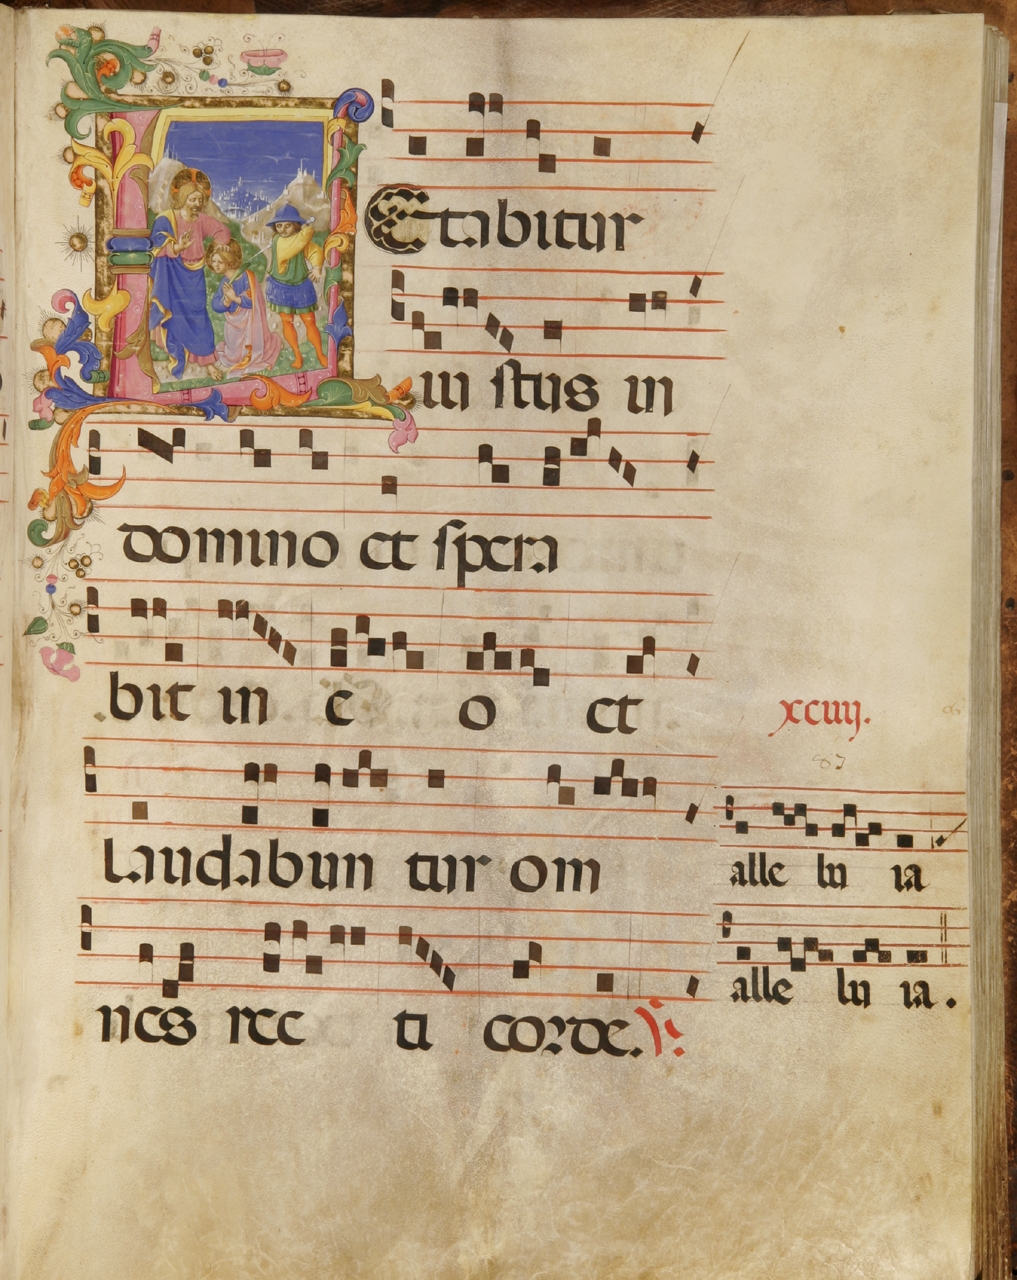 Etabitur
iustus in
domino et spera
bit in e o et
xciiij.
87
laudabun tur om
alle lu ia
nes rec ti corde. V:
alle lu ia.